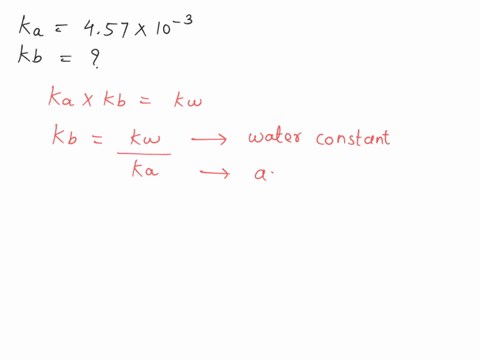 ka = 4.57 × 10⁻³
kb = ?
ka × kb = kw
kb = kw/ka → water constant
→ a.